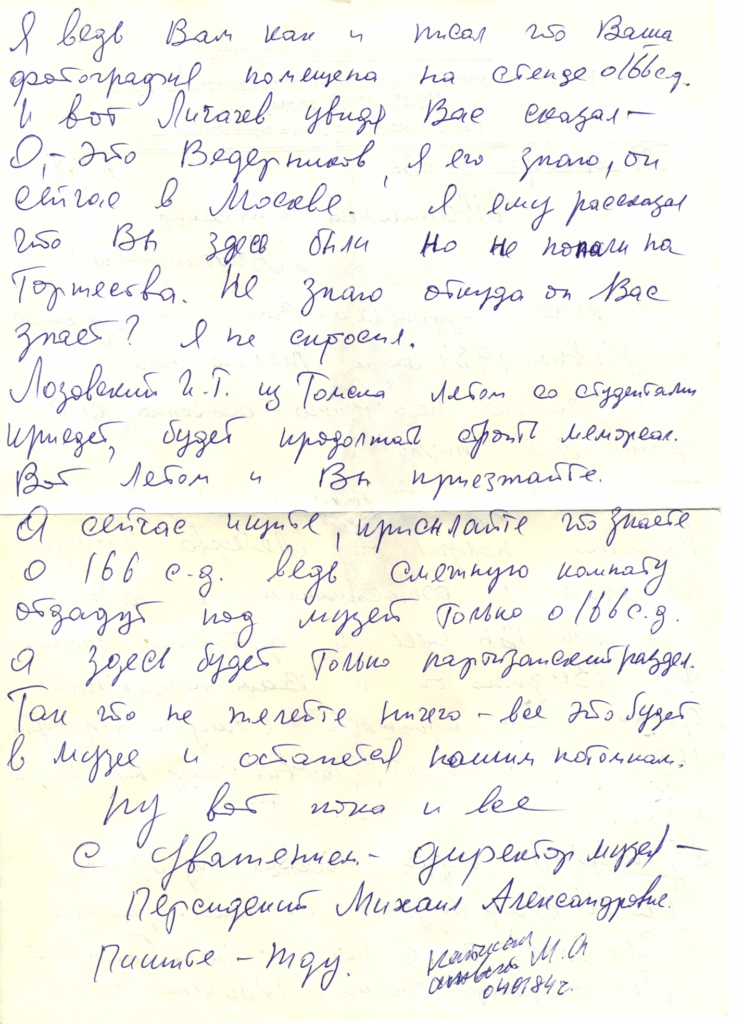 Я ведь Вам как и писал что Ваша
фотография помещена на стенде о 166 с.д.
И вот Лигачев увидя Вас сказал –
О, – это Ведерников, я его знаю, он
сейчас в Москве. Я ему рассказал
что Вы здесь были но не попали на
Торжества. Не знаю откуда он Вас
знает? Я не спросил.
Лозовский И.Т. из Томска летом со студентами
приедет, будет продолжать строить мемореал.
Вот летом и Вы приезжайте.
А сейчас ищите, присылайте что знаете
о 166 с.д. ведь смежную комнату
отдадут под музей только о 166 с.д.
а здесь будет только партизанский раздел.
Так что не жалейте ничего – все это будет
в музее и останется нашим потомкам.
Ну вот пока и все
С уважением – директор музея –
Персидский Михаил Александрович.
Пишите – жду.
М. А
040184 г.